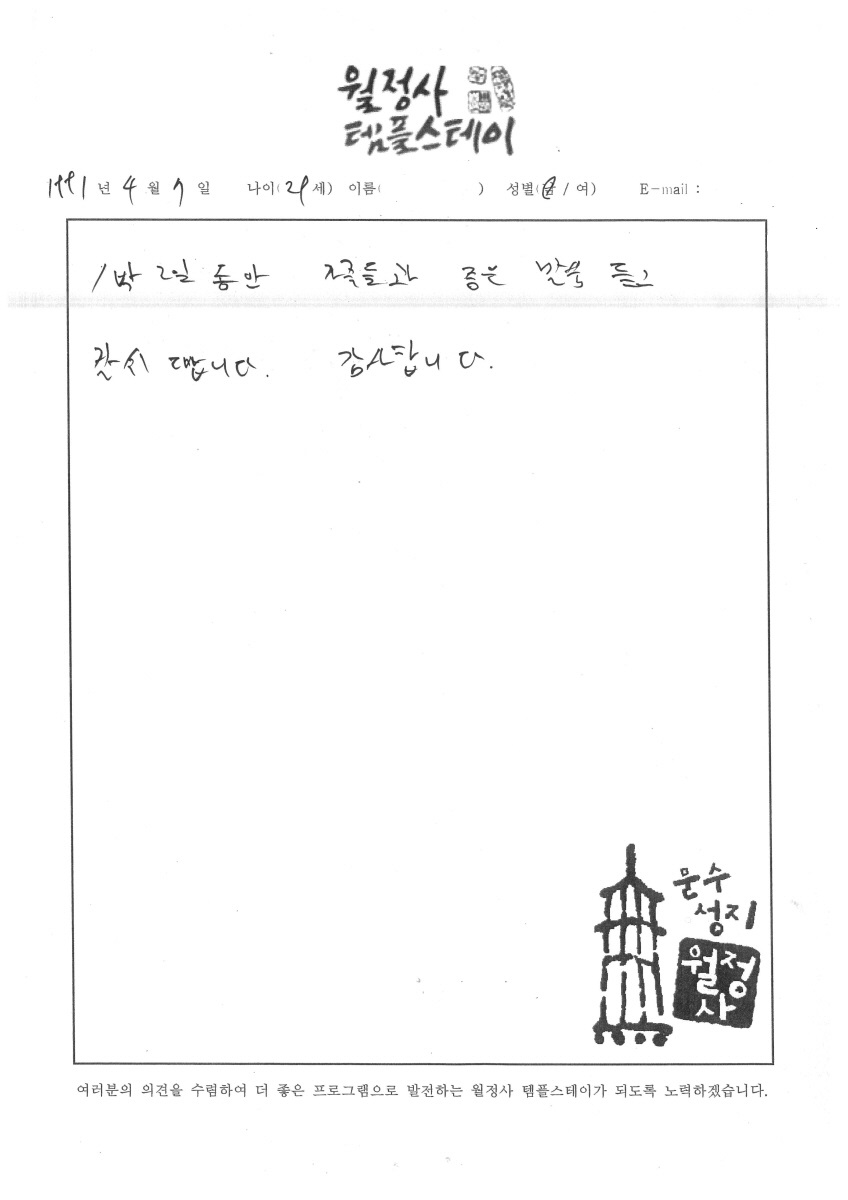 월정사
템플스테이
1991년 4월 7일 나이(29세) 이름( ) 성별(남 / 여) E-mail :
1박 2일 동안 가족들과 좋은 말씀 듣고
잘 쉬다 갑니다. 감사합니다.
문수
성지
월정
사
여러분의 의견을 수렴하여 더 좋은 프로그램으로 발전하는 월정사 템플스테이가 되도록 노력하겠습니다.